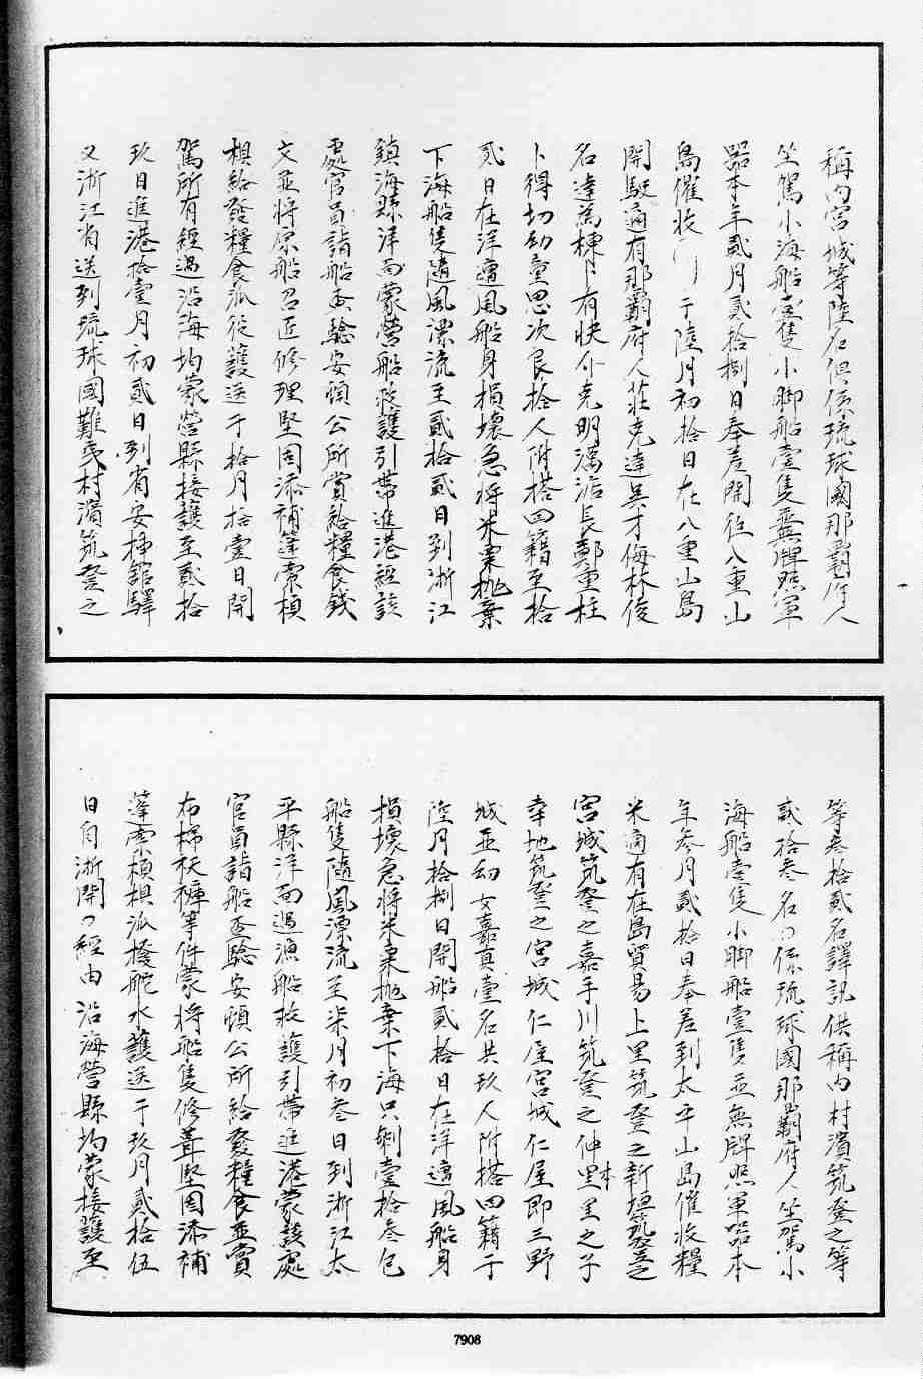 稱內宮城等陸名俱係琉球國那霸府人
坐駕小海船壹隻小脚船壹隻無牌照軍
器本年貳月貳拾捌日奉差開往八重山
島催收 于陸月初拾日在八重山島
開駛適有那霸府人莊克達吳才侮林俊
名達為棟 有快 克明 長鄭重柱
卜得切幼童思次良拾人附搭回籍至拾
貳日在洋遭風船身損壞急將米粟拋棄
下海船隻隨風漂流至貳拾貳日到浙江
鎮海縣洋面蒙營船救護引帶進港經該
處官員詣船查驗安頓公所賞給糧食錢
文並將原船召匠修理堅固添補篷索槓
椇給發糧食派從護送于拾月拾壹日開
駕所有經過沿海均蒙營縣接護至貳拾
玖日進港拾壹月初貳日到省安插館驛
又浙江省送到琉球國難夷村濱筑登之
等叁拾貳名譯訊供稱內村濱筑登之等
貳拾叁名 係琉球國那霸府人坐駕小
海船壹隻小脚船壹隻並無牌照軍器本
年叁月貳拾日奉差到太平山島催收糧
米適有在島貿易上里筑登之新垣筑登之
宮城筑登之嘉手川筑登之仲里里之子
幸地筑登之宮城仁屋宮城仁屋即三野
城並幼女嘉真壹名共玖人附搭回籍于
陸月拾捌日開船貳拾日在洋遭風船身
損壞急將米粟拋棄下海只剩壹拾叁包
船隻隨風漂流至柒月初叁日到浙江太
平縣洋面遇漁船救護引帶進港蒙該處
官員詣船查驗安頓公所給發糧食並賞
布棉袄褲等件蒙將船隻修葺堅固添補
篷索槓椇派撥舵水護送于玖月貳拾伍
日自浙開 經由沿海營縣均蒙接護至
7908